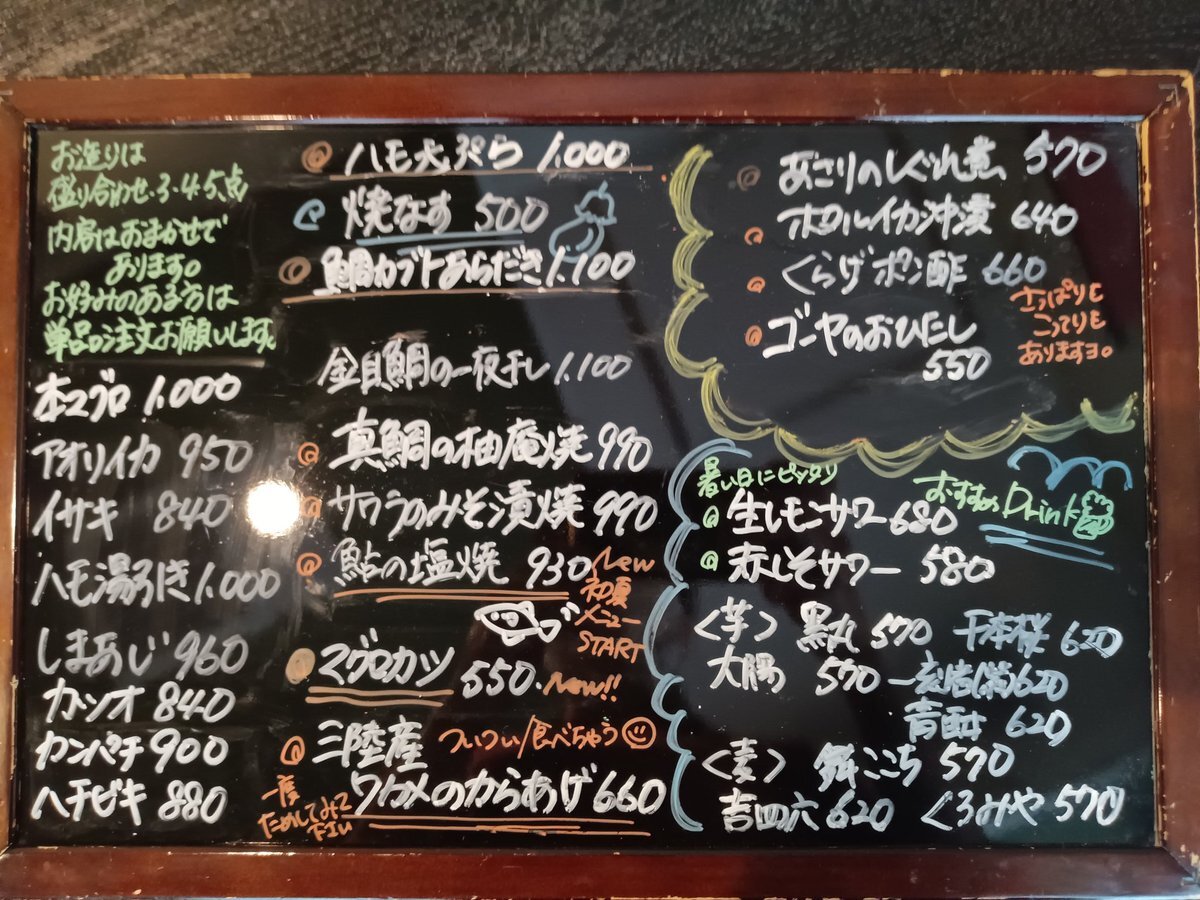 お造りは
盛り合わせ・3・4・5点
内容はおまかせで
あります。
お好みのある方は
単品ご注文お願いします。
本マグロ 1.000
アオリイカ 950
イサキ 840
ハモ湯引き 1.000
しまあじ 960
カツオ 840
カンパチ 900
ハチビキ 880
ハモ天ぷら 1.000
焼なす 500
鯛カブトあらだき 1.100
金目鯛の一夜干し 1.100
真鯛の柚庵焼 990
サワラのみそ漬焼 990
鮎の塩焼 930
New
初夏
メニュー
START
マグロカツ 550. New!!
三陸産 ついつい食べちゃう
ワカメのからあげ 660
一度
ためしてみて
下さい
あさりのしぐれ煮 570
ホタルイカ沖漬 640
くらげポン酢 660
ゴーヤのおひたし
550
さっぱりと
こってりと
ありますヨ。
暑い日にピッタリ
おすすめ Drink
生レモンサワー 680
赤しそサワー 580
〈芋〉 黒丸 570 千本桜 620
大隅 570 一刻店(芋) 620
620
〈麦〉 舞ここち 570
吉四六 620 くろみや 570